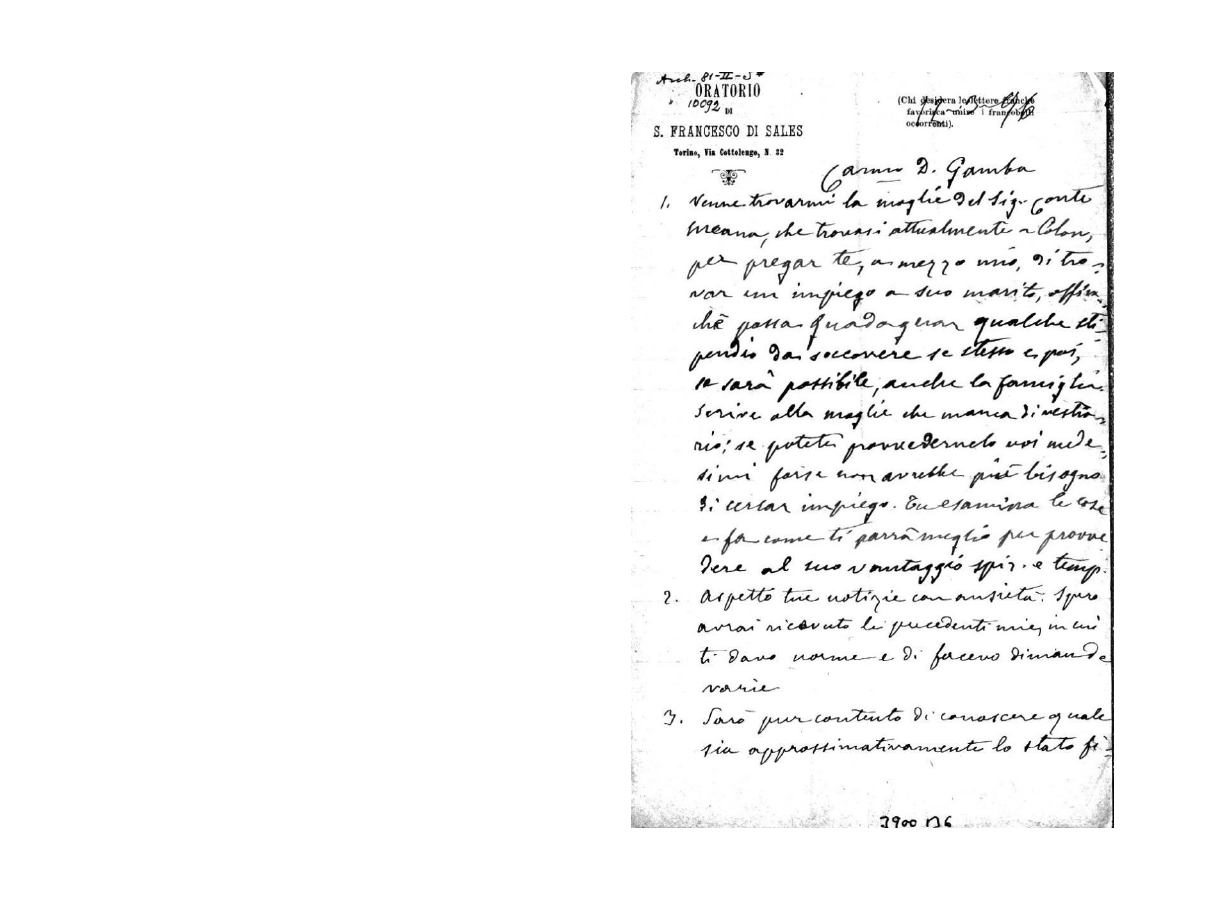 Arch. 81-II-
ORATORIO
10092 DI
S. FRANCESCO DI SALES
Torino, Via Cottolengo, N. 32
(Chi desidera le lettere franche
favorisca unire i francobolli
occorrenti).
Carmo D. Gamba
1. Venne trovarmi la moglie del Sig. Conte
che trovasi attualmente a Colon,
per pregar te, a mezzo mio, di tro-
var un impiego a suo marito, affin-
chè possa guadagnar qualche sti-
pendio da soccorrere se stesso e poi,
se sarà possibile, anche la famiglia.
Scrive alla moglie che manca di vestia-
rio; se potete provvedernelo voi mede-
simi forse non avrebbe più bisogno
di cercar impiego. Tu esamina le cose
e fa come ti parrà meglio per provve
dere al suo vantaggio spir. e temp.
2. Aspetto tue notizie con ansietà. Spero
avrai ricevuto le precedenti mie, in cui
ti davo norme e di facevo dimande
varie
3. Sarò pur contento di conoscere quale
sia approssimativamente lo stato fi-
3900 D6